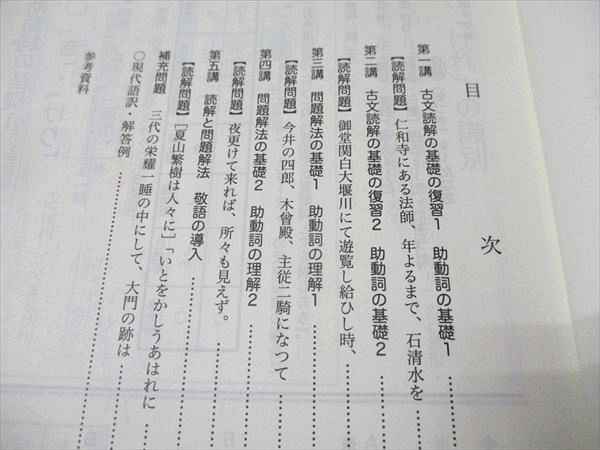 目次
第一講 古文読解の基礎の復習1 助動詞の基礎1
【読解問題】仁和寺にある法師、年よるまで、石清水を
第二講 古文読解の基礎の復習2 助動詞の基礎2
【読解問題】御堂関白大堰川にて遊覧し給ひし時、
第三講 問題解法の基礎1 助動詞の理解1
【読解問題】今井の四郎、木曾殿、主従二騎になつて
第四講 問題解法の基礎2 助動詞の理解2
【読解問題】夜更けて来れば、所々も見えず。
第五講 読解と問題解法 敬語の導入
【読解問題】「夏山繁樹は人々に」「いとをかしうあはれに
補充問題 三代の栄耀一睡の中にして、大門の跡は
○現代語訳・解答例
参考資料